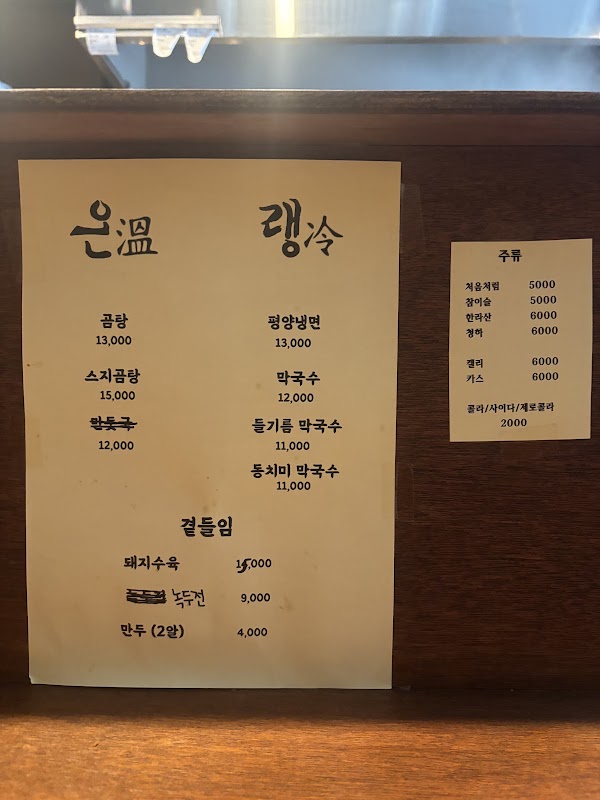 온溫
곰탕
13,000
스지곰탕
15,000
만둣국
12,000
랭冷
평양냉면
13,000
막국수
12,000
들기름 막국수
11,000
동치미 막국수
11,000
곁들임
돼지수육 15,000
녹두전 9,000
만두 (2알) 4,000
주류
처음처럼 5000
참이슬 5000
한라산 6000
청하 6000
켈리 6000
카스 6000
콜라/사이다/제로콜라
2000